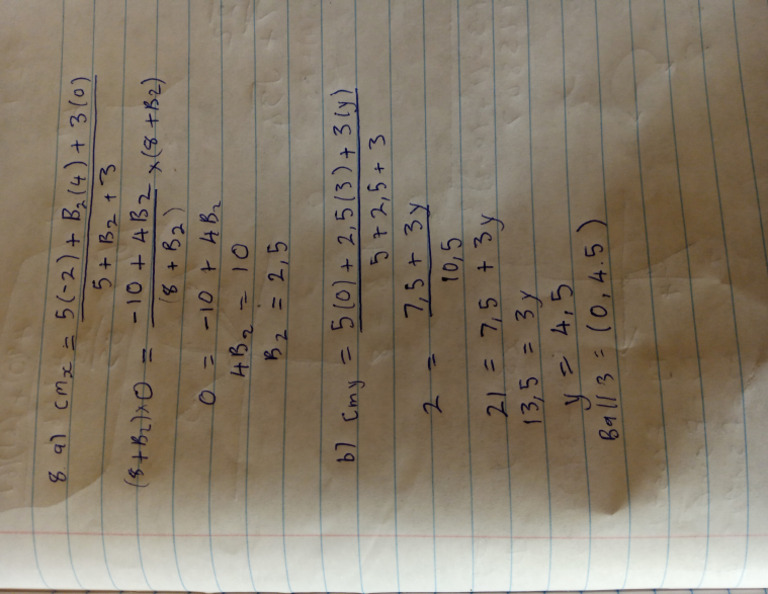 8 a) cmₓ = 5(-2) + B₂(4) + 3(0)
5 + B₂ + 3
(8+B₂)×0 = -10 + 4B₂ ×(8+B₂)
(8 + B₂)
0 = -10 + 4B₂
4B₂ = 10
B₂ = 2,5
b) cmy = 5(0) + 2,5(3) + 3(y)
5 + 2,5 + 3
2 = 7,5 + 3y
10,5
21 = 7,5 + 3y
13,5 = 3y
y = 4,5
Ball 3 = (0, 4.5)